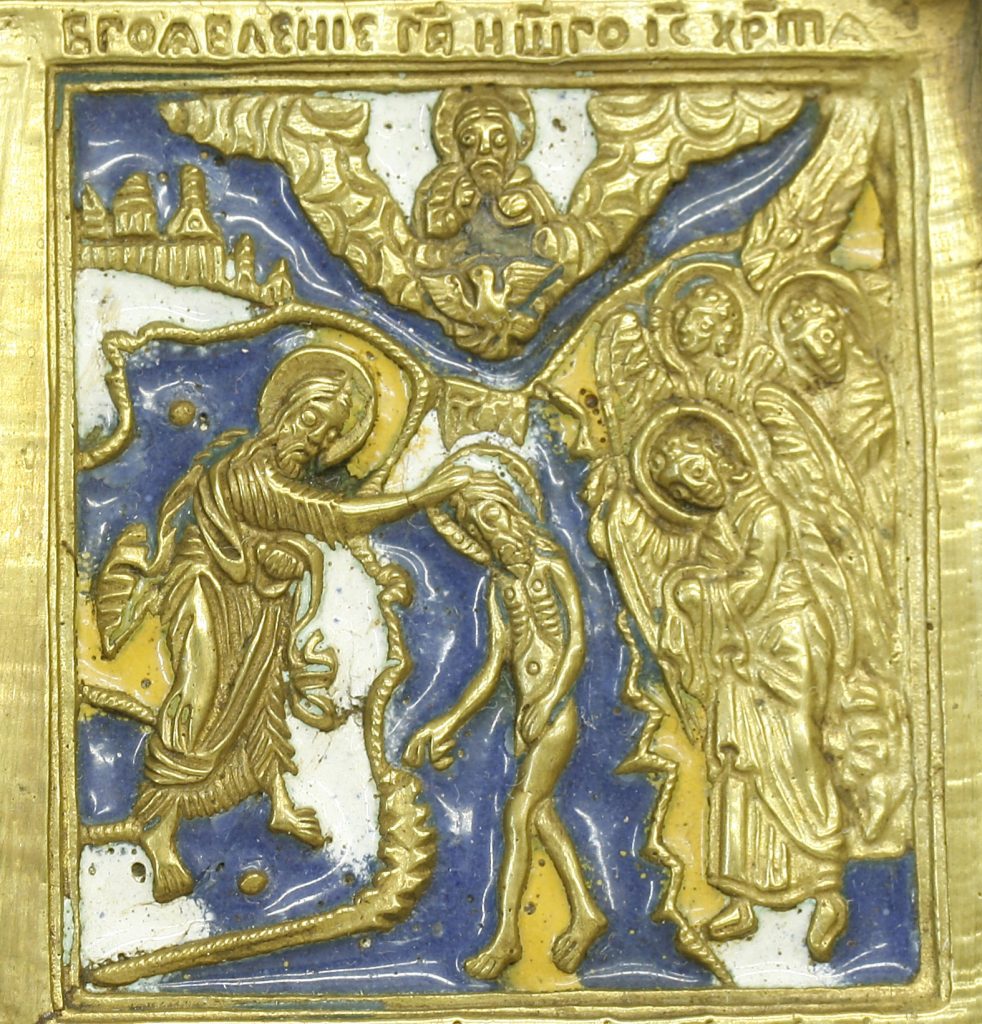 БГОѦВЛЕНІЕ ГА҃ НШ҃ГО ІС҃ ХРТ҃А